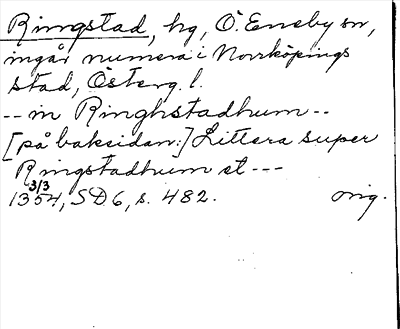 Ringstad, hg, Ö. Eneby sn,
ingår numera i Norrköpings
stad, Österg. l.
-- in Ringhstadhum --
[på baksidan:] Littera super
Ringstadhum et ---
3/3
1354, SD 6, s. 482. orig.